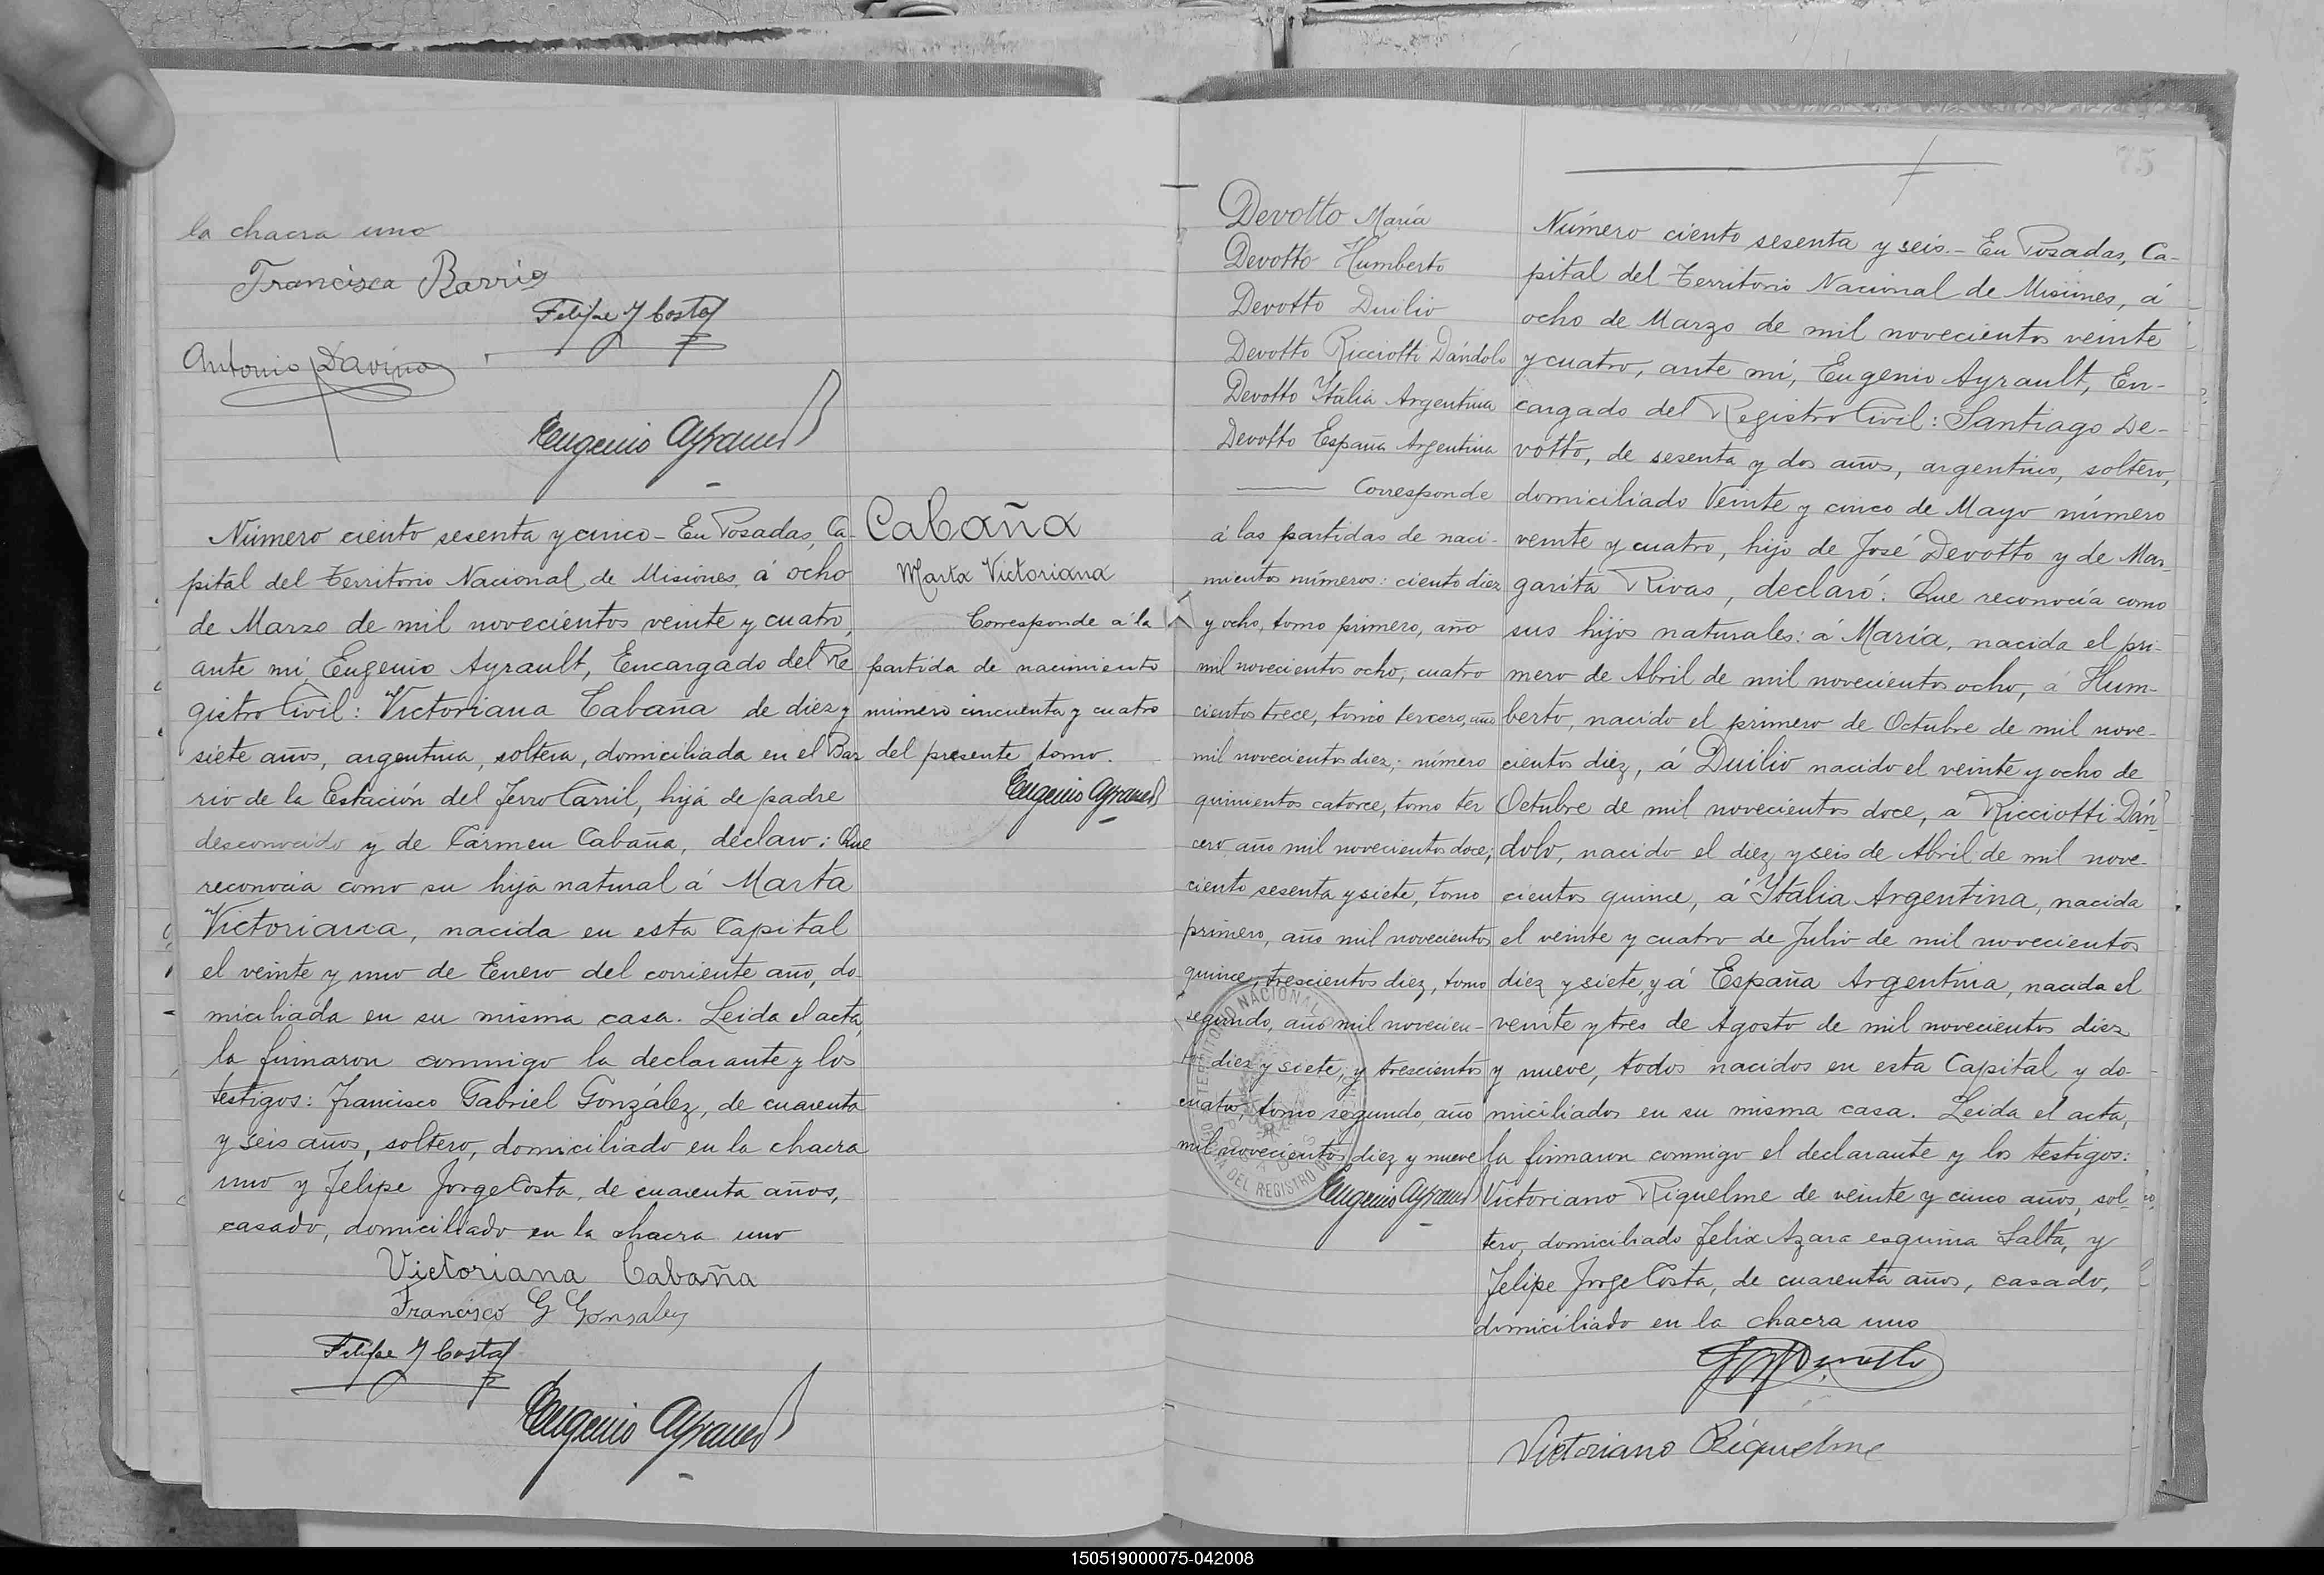 la chacra uno
Francisca Barrios
Felipe J Costa
Antonio Davina
Eugenio Ayrault
Número ciento sesenta y cinco - En Posadas, Ca-
pital del Territorio Nacional de Misiones, á ocho
de Marzo de mil novecientos veinte y cuatro,
ante mí, Eugenio Ayrault, Encargado del Re
gistro Civil: Victoriana Cabaña de diez y
siete años, argentina, soltera, domiciliada en el Bar
rio de la Estación del Ferro Carril, hija de padre
desconocido y de Cármen Cabaña, declaro: Que
reconocia como su hija natural á Marta
Victoriana, nacida en esta Capital
el veinte y uno de Enero del corriente año, do-
miciliada en su misma casa. Leida el acta,
la firmaron conmigo la declarante y los
testigos: Francisco Gabriel González, de cuarenta
y seis años, soltero, domiciliado en la chacra
uno y Felipe Jorge Costa, de cuarenta años,
casado, domiciliado en la chacra uno
Victoriana Cabaña
Francisco G Gonsales
Felipe J Costa
Eugenio Ayrault
Cabaña
Marta Victoriana
Corresponde á la
partida de nacimiento
número cincuenta y cuatro
del presente tomo.
Eugenio Ayrault
75
Devotto María
Devotto Humberto
Devotto Duilio
Devotto Ricciotti Dándolo
Devotto Itália Argentina
Devotto España Argentina
Corresponde
á las partidas de naci-
mientos números: ciento diez
y ocho, tomo primero, año
mil novecientos ocho, cuatro
cientos trece, tomo tercero, año
mil novecientos diez; número
quinientos catorce, tomo ter
cero año mil novecientos doce;
ciento sesenta y siete, tomo
primero, año mil novecientos
quince, trescientos diez, tomo
segundo, año mil novecien-
tos diez y siete, y trescientos
cuatro, tomo segundo, año
mil novecientos diez y nueve
Eugenio Ayrault
Número ciento sesenta y seis. - En Posadas, Ca-
pital del Territorio Nacional de Misiones, á
ocho de Marzo de mil novecientos veinte
y cuatro, ante mí, Eugenio Ayrault, En-
cargado del Registro Civil: Santiago De-
votto, de sesenta y dos años, argentino, soltero,
domiciliado Veinte y cinco de Mayo número
veinte y cuatro, hijo de José Devotto y de Mar-
garita Rivas, declaró: Que reconocía como
sus hijos naturales: á María, nacida el pri-
mero de Abril de mil novecientos ocho, á Hum-
berto, nacido el primero de Octubre de mil nove-
cientos diez, á Duilio nacido el veinte y ocho de
Octubre de mil novecientos doce, á Ricciotti Dán-
dolo, nacido el diez y seis de Abril de mil nove-
cientos quince, á Itália Argentina, nacida
el veinte y cuatro de Julio de mil novecientos
diez y siete, y á España Argentina, nacida el
veinte y tres de Agosto de mil novecientos diez
y nueve, todos nacidos en esta Capital y do-
miciliados en su misma casa. Leida el acta,
la firmaron conmigo el declarante y los testigos:
Victoriano Riquelme de veinte y cinco años, sol-
tero, domiciliado Felix Azara esquina Salta, y
Felipe Jorge Costa, de cuarenta años, casado,
domiciliado en la chacra uno
Victoriano Riquelme
150519000075-042008